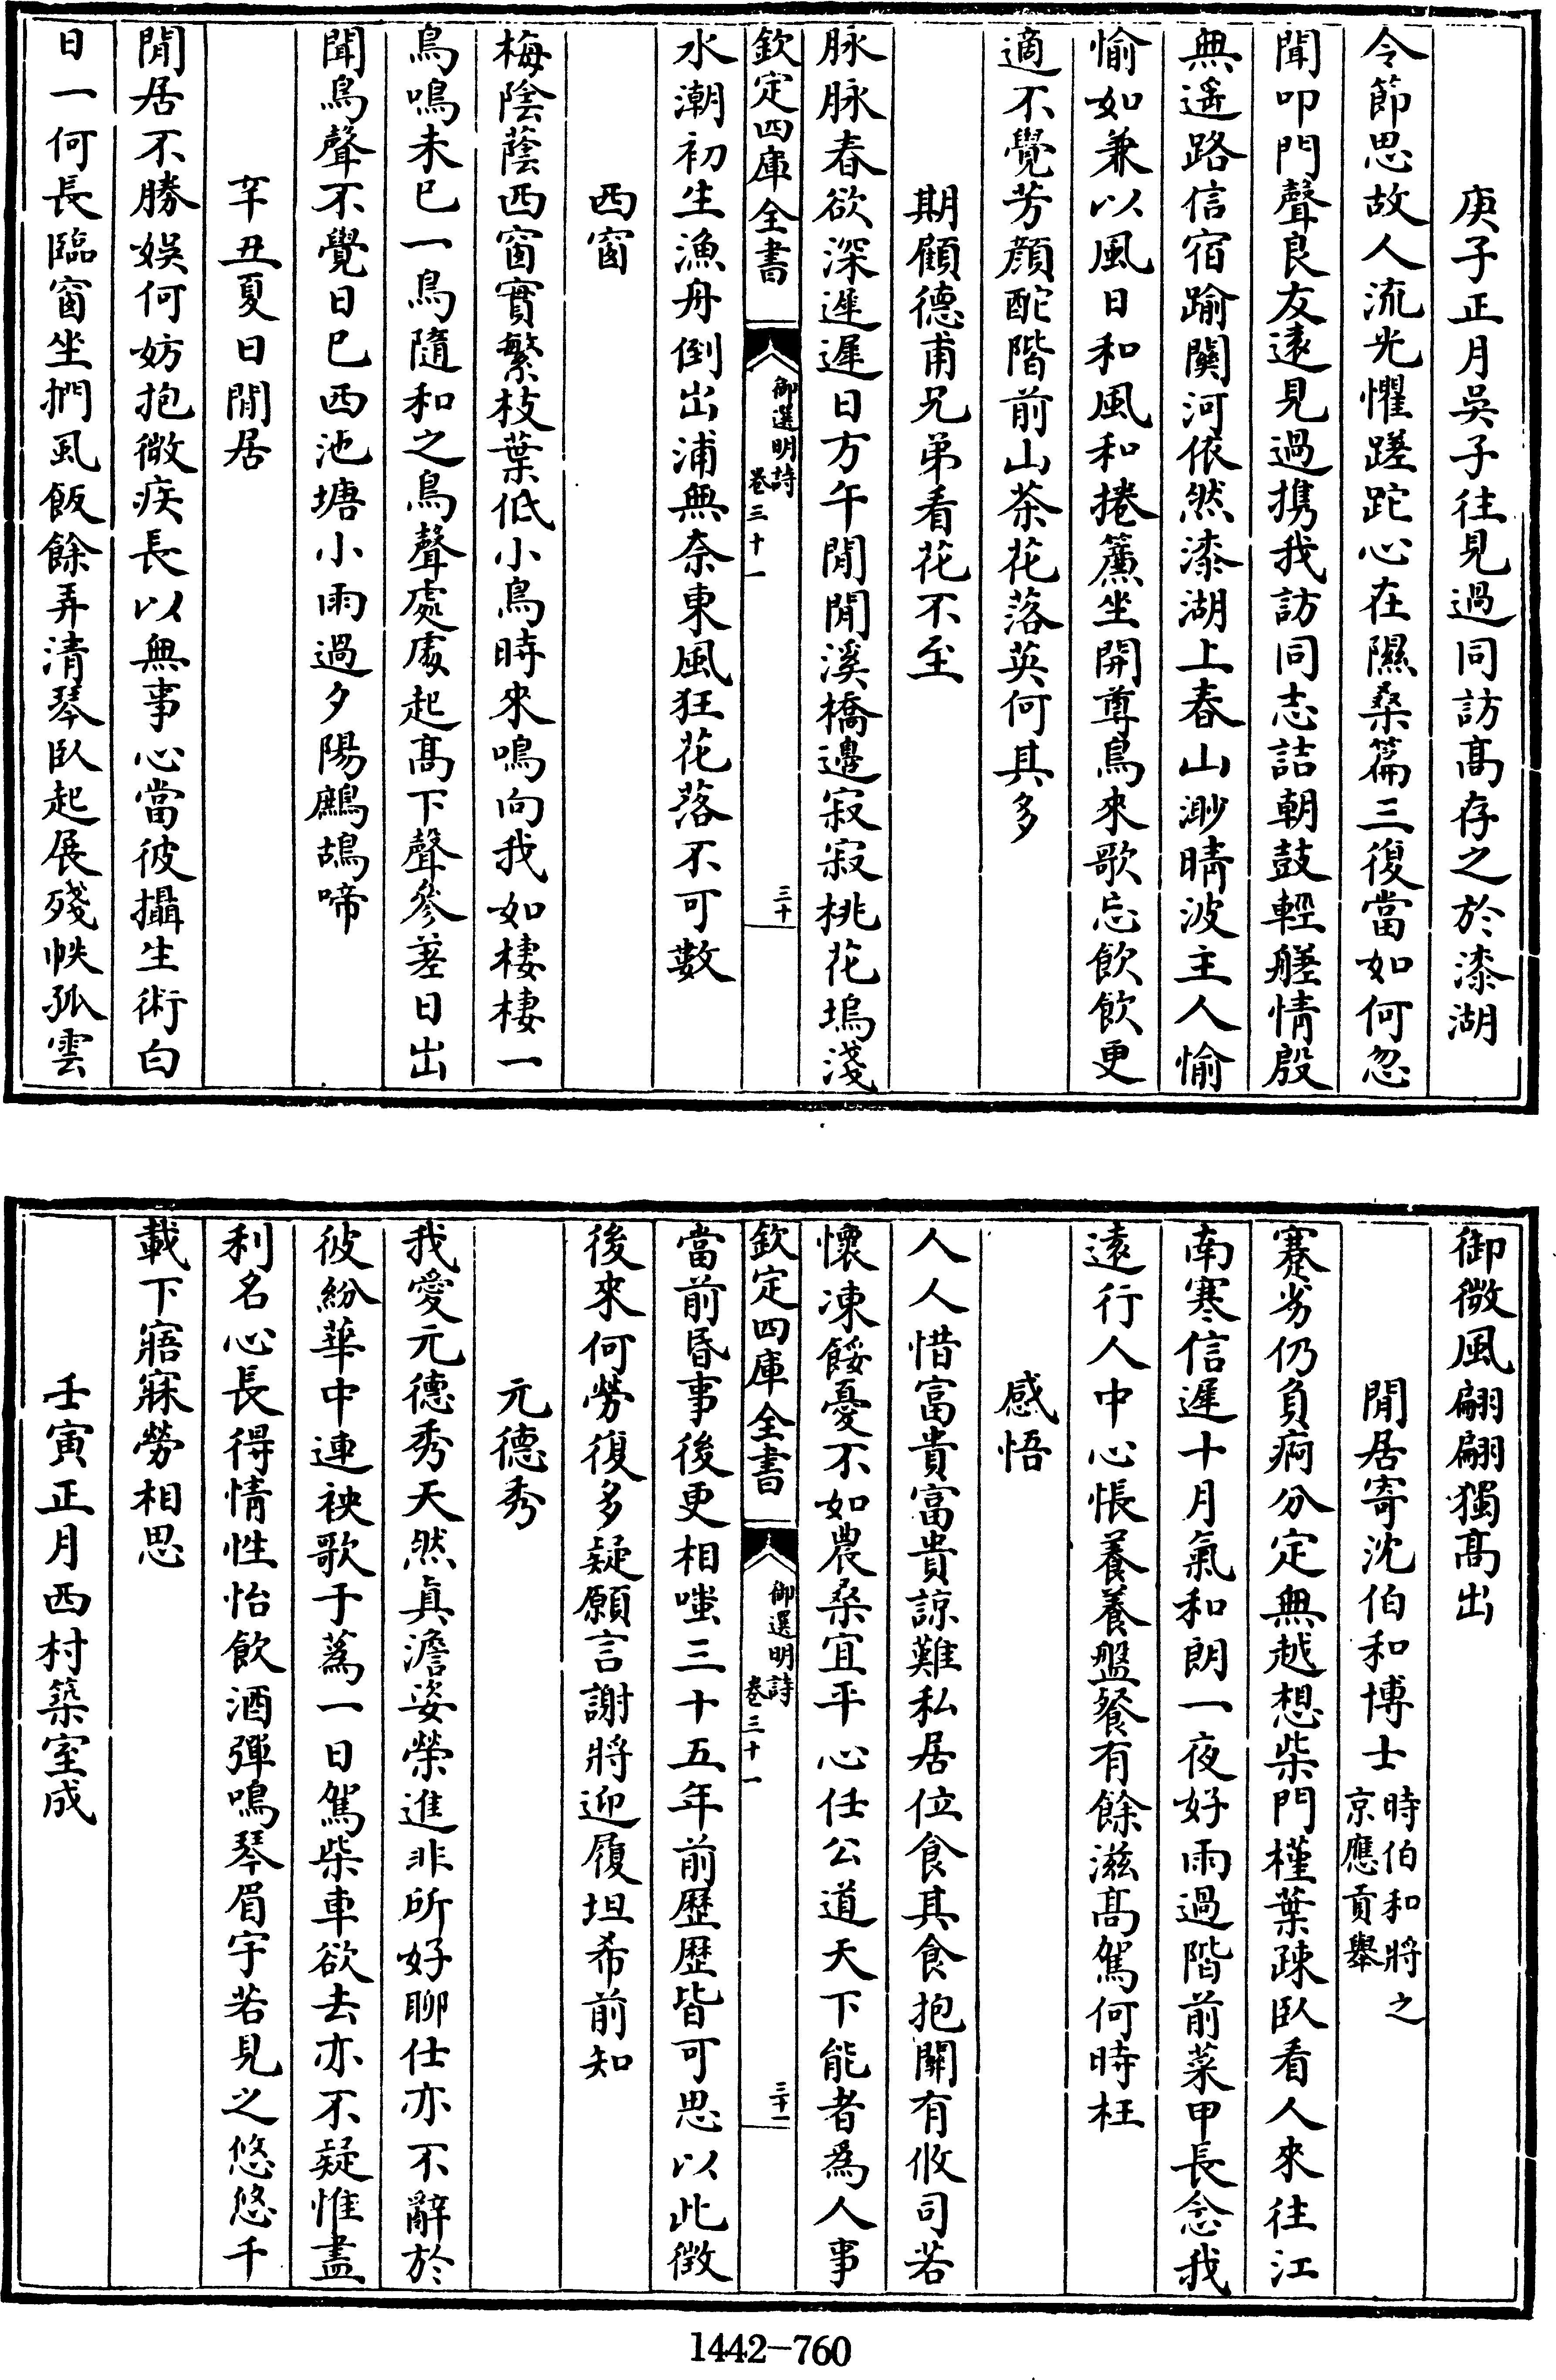 庚子正月吳子往見過同訪髙存之於漆湖
令節思故人流光懼蹉跎心在隰桑篇三復當如何忽
聞叩門聲良友遠見過携我訪同志詰朝鼓輕艖情殷
無遥路信宿踰關河依然漆湖上春山渺晴波主人愉
愉如兼以風日和風和捲簾坐開尊鳥來歌忘飲飲更
適不覺芳顔酡階前山茶花落英何其多
期顧德甫兄弟看花不至
脉脉春欲深遲遲日方午閒閒溪橋邊寂寂桃花塢淺
欽定四庫全書
御選明詩
卷三十一
三十
水潮初生漁舟倒出浦無奈東風狂花落不可數
西窗
梅陰蔭西窗實繁枝葉低小鳥時來鳴向我如棲棲一
鳥鳴未已一鳥隨和之鳥聲處處起髙下聲參差日出
聞鳥聲不覺日已西池塘小雨過夕陽鷓鴣啼
辛丑夏日閒居
閒居不勝娱何妨抱微疾長以無事心當彼攝生術白
日一何長臨窗坐捫虱飯餘弄清琴臥起展殘帙孤雲
御微風翩翩獨髙出
閒居寄沈伯和博士 時伯和將之
京應貢舉
蹇劣仍負痾分定無越想柴門槿葉疎臥看人來往江
南寒信遲十月氣和朗一夜好雨過階前菜甲長念我
遠行人中心悵養養盤餐有餘滋髙駕何時枉
感悟
人人惜富貴富貴諒難私居位食其食抱關有攸司若
懷凍餒憂不如農桑宜平心任公道天下能者爲人事
欽定四庫全書
御選明詩
卷三十一
三十一
當前昏事後更相嗤三十五年前歷歷皆可思以此徴
後來何勞復多疑願言謝將迎履坦希前知
元德秀
我愛元德秀天然眞澹姿榮進非所好聊仕亦不辭於
彼紛華中連袂歌于蔿一日駕柴車欲去亦不疑惟盡
利名心長得情性怡飲酒彈鳴琴眉宇若見之悠悠千
載下寤寐勞相思
壬寅正月西村築室成
1442-760